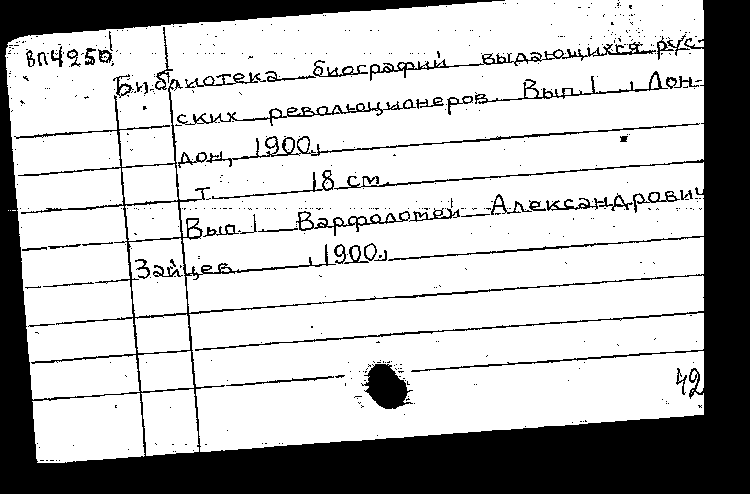 ВП4250
Библиотека биографий выдающихся рус-
ских революционеров. Вып.1 , Лон-
дон, 1900,
т. 18 см.
Вып.1 Варфоломей Александрович
Зайцев , 1900.,
42